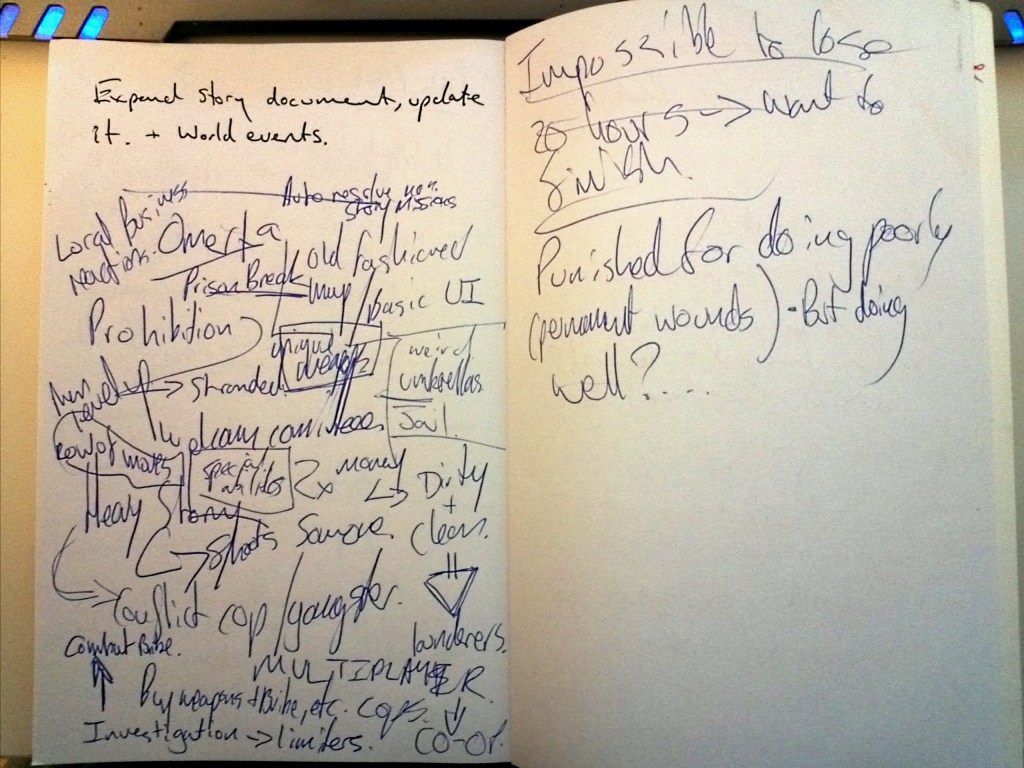 Expand story document, update
it. + World events.
Auto resolve non.
story missions
Local Business
reactions.
Omerta
old fashioned
map / basic UI
Prison Break
Prohibition
unique
weird
umbrellas
Jail.
→ Stranded
special
abilities
2x money
↳ Dirty
+
clean.
Heavy Story
↳ Shoots Someone.
Conflict cop/gangster.
launderers.
Combat Bribe.
MULTIPLAYER
↓
CO-OP.
Buy weapons + Bribe, etc. cops.
Investigation → limiters.
Impossible to lose
20 hours → want to
finish.
Punished for doing poorly
(permanent wounds) - But doing
well?....